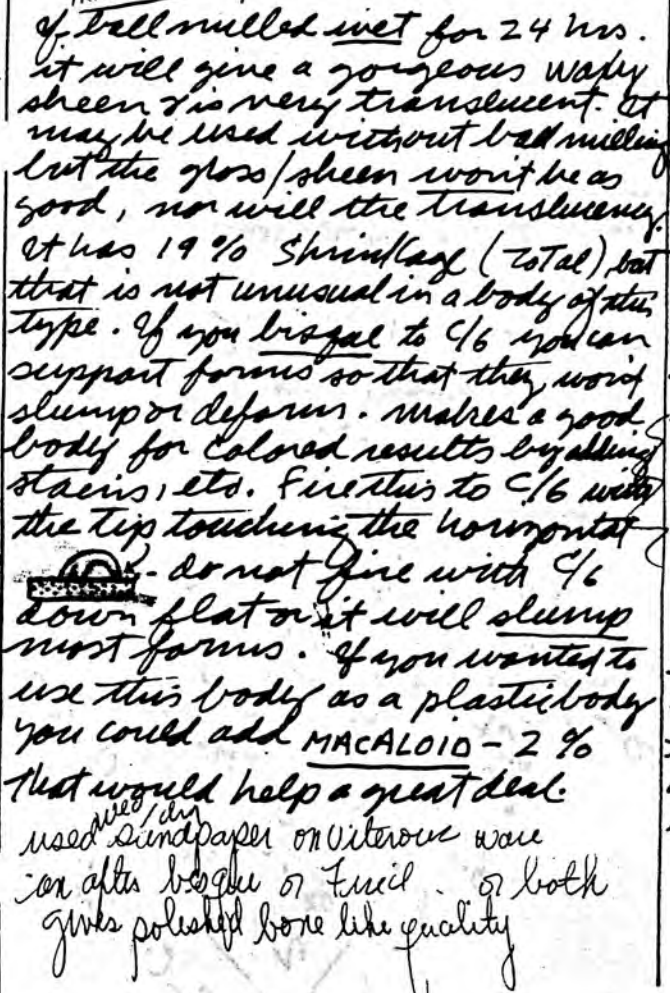 If ball milled wet for 24 hrs.
it will give a gorgeous waxy
sheen & is very translucent. It
may be used without ball milling
but the gloss/sheen won't be as
good, nor will the translucency.
It has 19% Shrinkage (total) but
that is not unusual in a body of this
type. If you bisque to C/6 you can
support forms so that they won't
slump or deform. Makes a good
body for colored results by adding
stains, etc. Fire this to C/6 with
the tip touching the horizontal
- do not fire with C/6
down flat or it will slump
most forms. If you wanted to
use this body as a plastic body
you could add MACALOID - 2%
that would help a great deal.
wet/dry
used sandpaper on viterous ware
on after bisque or Fired. or both
gives polished bone like quality